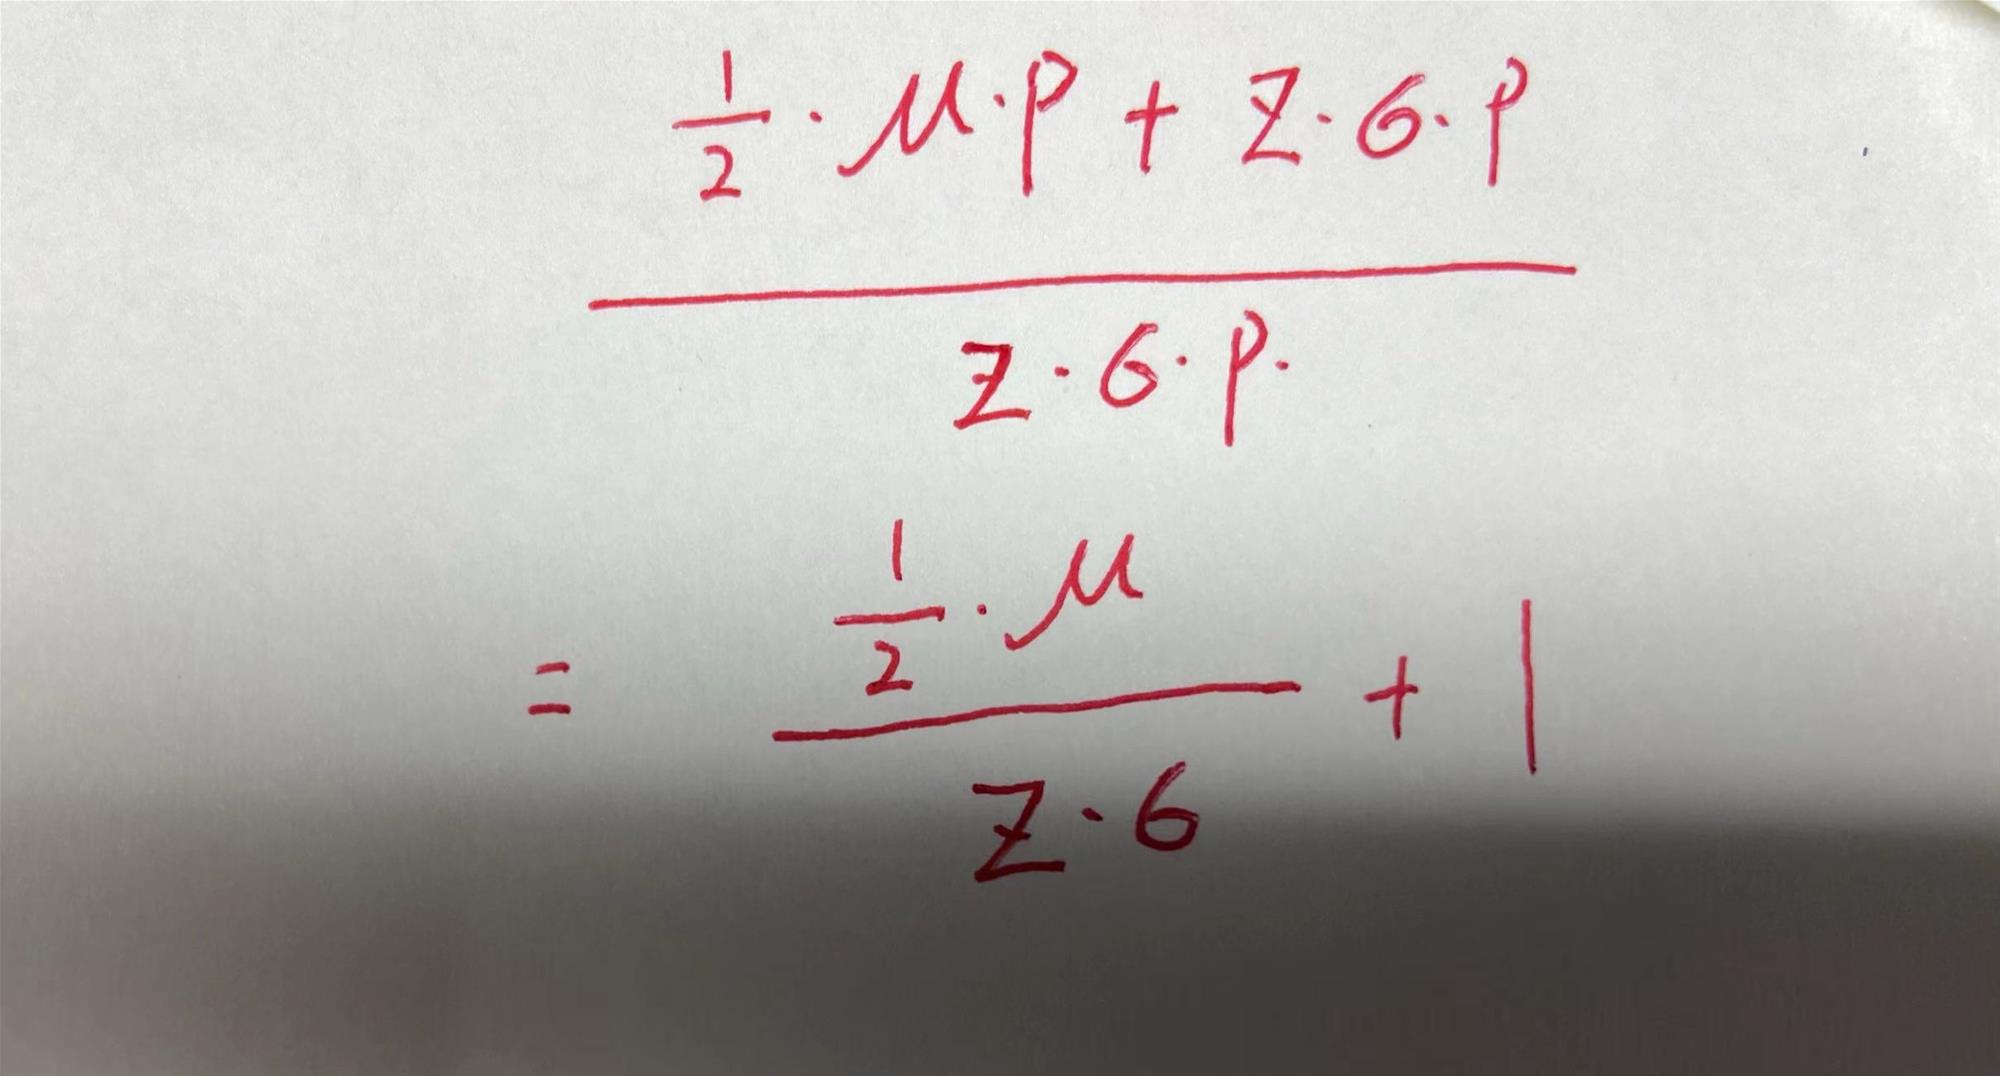 1/2 · μ · P + Z · σ · P
Z · σ · P.
= 1/2 · μ / Z · σ + 1